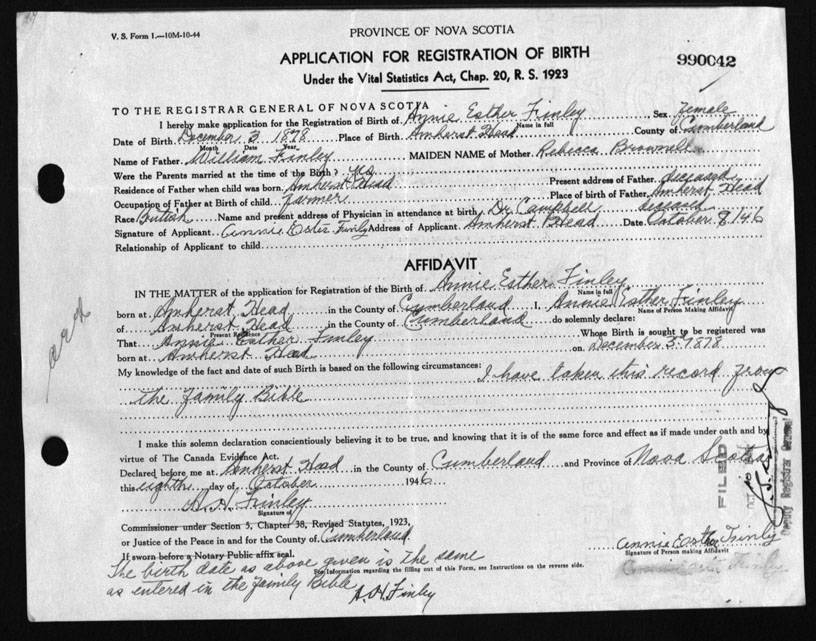 V. S. Form 1.—10M-10-44
PROVINCE OF NOVA SCOTIA
APPLICATION FOR REGISTRATION OF BIRTH
990042
Under the Vital Statistics Act, Chap. 20, R. S. 1923
TO THE REGISTRAR GENERAL OF NOVA SCOTIA
I hereby make application for the Registration of Birth of Annie Esther Finley Sex Female
Name in full
Date of Birth December 3 1878 Place of Birth Amherst Head County of Cumberland
Month Date Year
Name of Father William Finley MAIDEN NAME of Mother Rebecca Brownell
Were the Parents married at the time of the Birth? yes
Residence of Father when child was born Amherst Head Present address of Father deceased
Occupation of Father at Birth of child Farmer Place of birth of Father Amherst Head
Race British Name and present address of Physician in attendance at birth Dr Campbell deceased
Signature of Applicant Annie Ester Finly Address of Applicant Amherst Head Date October 8 146
Relationship of Applicant to child
AFFIDAVIT
IN THE MATTER of the application for Registration of the Birth of Annie Esther Finley
Name in full
born at Amherst Head in the County of Cumberland I, Annie Esther Finley
Name of Person Making Affidavit
of Amherst Head in the County of Cumberland do solemnly declare:
Present Residence
That Annie Esther Finley Whose Birth is sought to be registered was
born at Amherst Head on December 3 1878
My knowledge of the fact and date of such Birth is based on the following circumstances: I have taken this record from
the Family Bible
I make this solemn declaration conscientiously believing it to be true, and knowing that it is of the same force and effect as if made under oath and by
virtue of The Canada Evidence Act.
Declared before me at Amherst Head in the County of Cumberland and Province of Nova Scotia
this eighth day of October 1946
A. H. Finley
Signature of
Commissioner under Section 5, Chapter 38, Revised Statutes, 1923,
or Justice of the Peace in and for the County of Cumberland
If sworn before a Notary Public affix seal.
Annie Esther Finly
Signature of Person making Affidavit
For Information regarding the filling out of this Form, see Instructions on the reverse side.
The birth date as above given is the same
as entered in the Family Bible
A. H. Finley
FILED
Deputy Registrar General